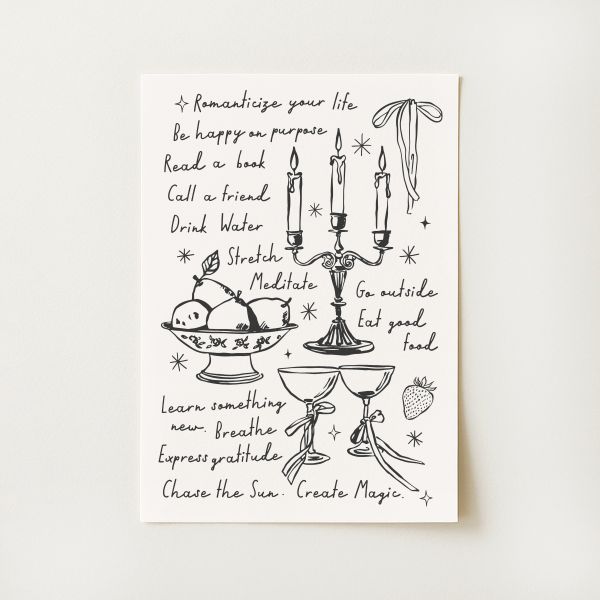 Romanticize your life
Be happy on purpose
Read a book
Call a friend
Drink Water
Stretch
Meditate
Go outside
Eat good
food
Learn something
new. Breathe
Express gratitude
Chase the Sun. Create Magic.